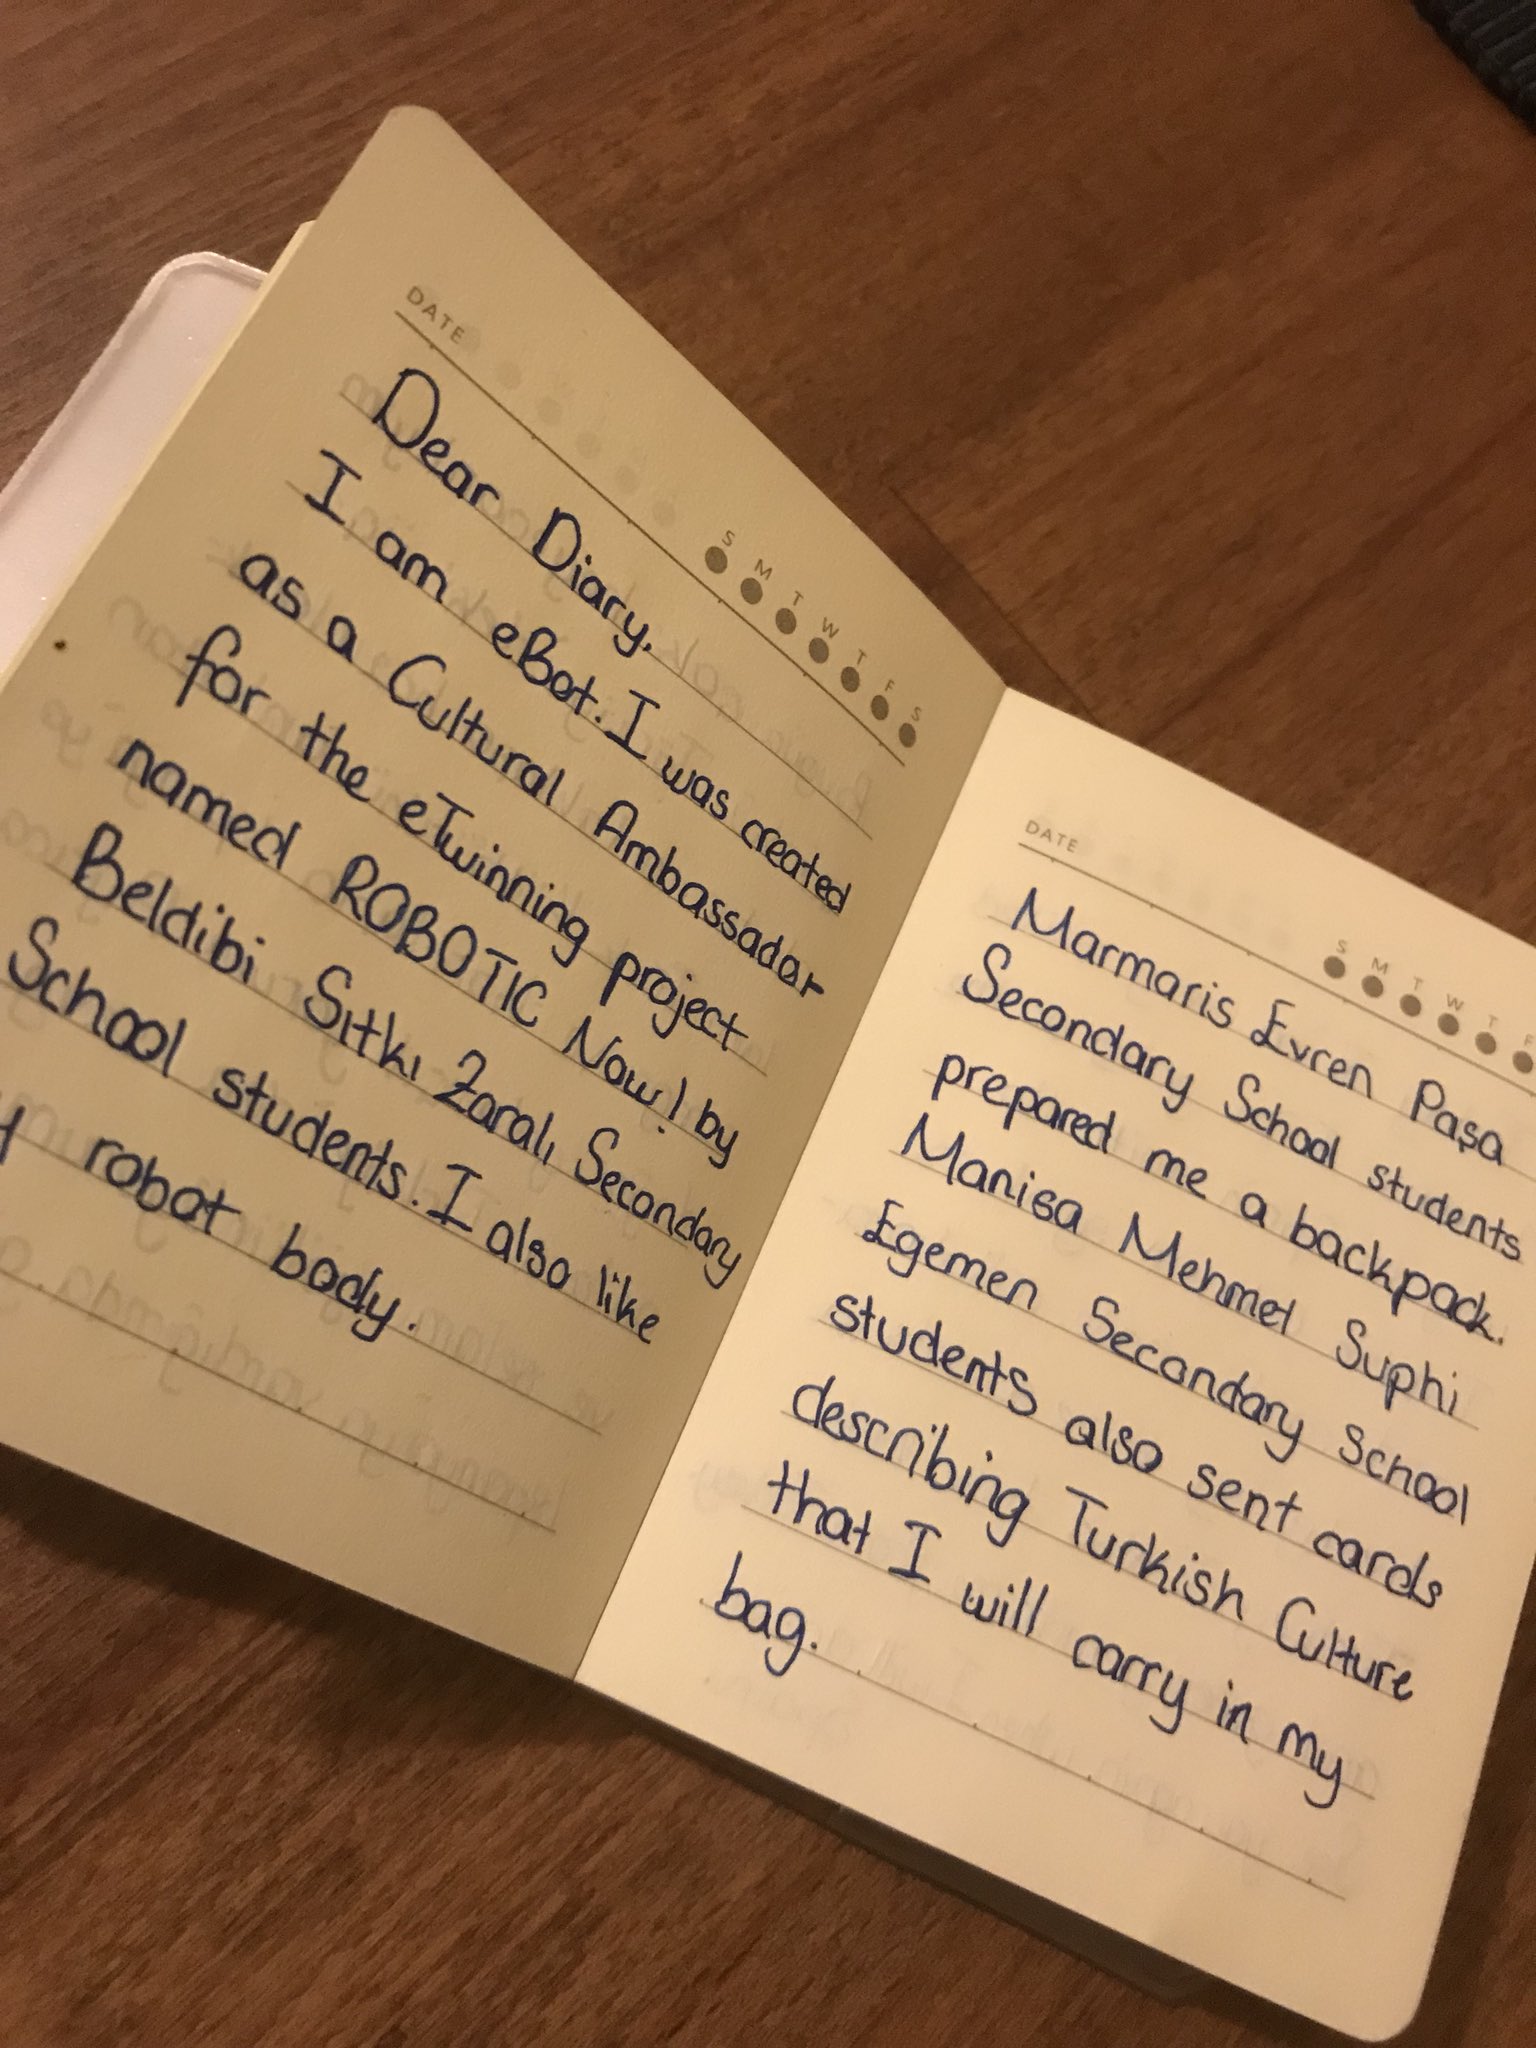 DATE
S M T W T F S
Dear Diary,
I am eBot. I was created
as a Cultural Ambassador
for the eTwinning project
named ROBOTIC Now! by
Beldibi Sıtkı Zaralı Secondary
School students. I also like
y robot body.
DATE
S M T W T F
Marmaris Evren Paşa
Secondary School students
prepared me a backpack.
Manisa Mehmet Suphi
Egemen Secondary School
students also sent cards
describing Turkish Culture
that I will carry in my
bag.